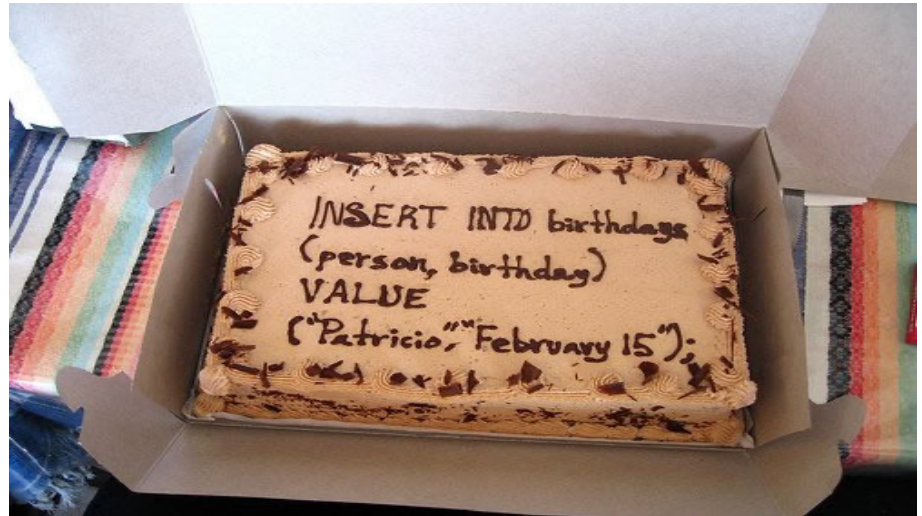 INSERT INTO birthdays
(person, birthday)
VALUE
("Patricio","February 15");